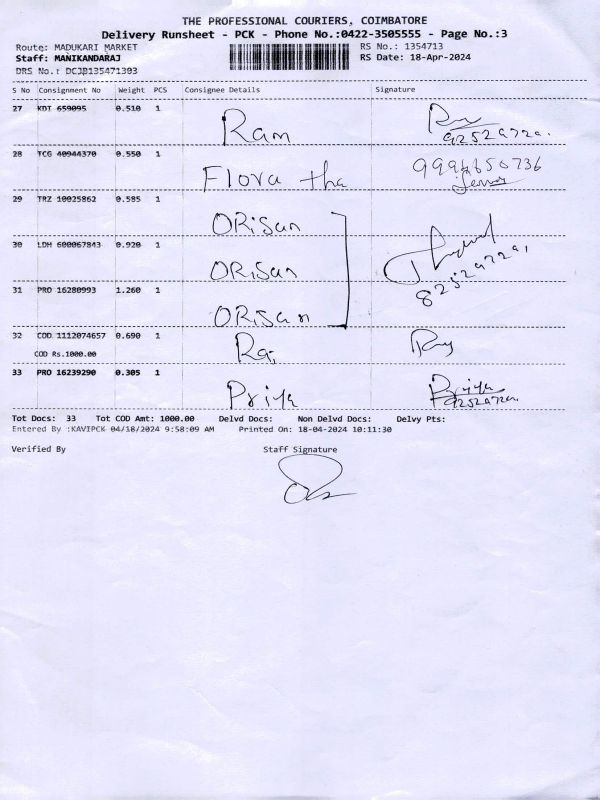 THE PROFESSIONAL COURIERS, COIMBATORE
Delivery Runsheet - PCK - Phone No.:0422-3505555 - Page No.:3
Route: MADUKARI MARKET RS No.: 1354713
Staff: MANIKANDARAJ RS Date: 18-Apr-2024
DRS No.: DCJB135471303
S No Consignment No Weight PCS Consignee Details Signature
27 KDT 659095 0.510 1 Ram
28 TCG 40944370 0.550 1 Flora tha 9994650736
29 TRZ 10025862 0.585 1 ORisan
30 LDH 600067843 0.920 1 ORisan
31 PRO 16280993 1.260 1 ORisan
32 COD 1112074657 0.690 1 Raj
COD Rs.1000.00
33 PRO 16239290 0.305 1 Priya Priya
Tot Docs: 33 Tot COD Amt: 1000.00 Delvd Docs: Non Delvd Docs: Delvy Pts:
Entered By :KAVIPCK 04/18/2024 9:58:09 AM Printed On: 18-04-2024 10:11:30
Verified By Staff Signature